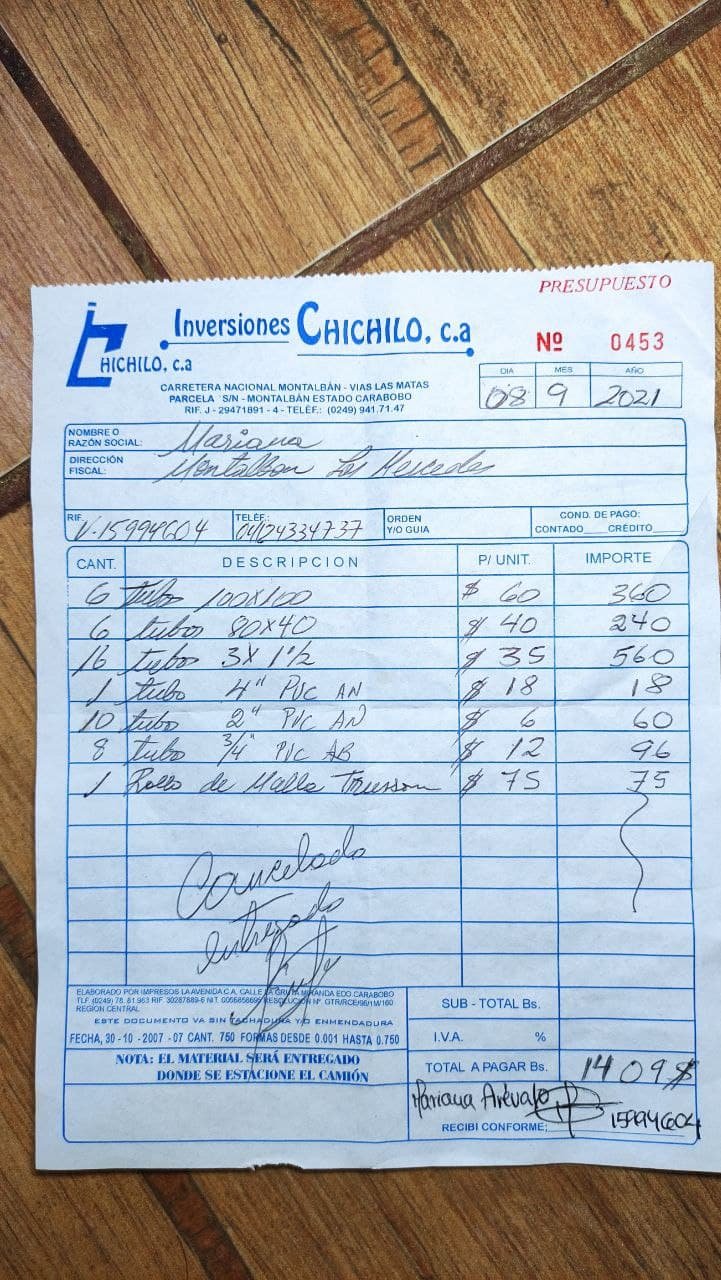 PRESUPUESTO
Inversiones CHICHILO, c.a
HICHILO, c.a
Nº 0453
CARRETERA NACIONAL MONTALBÁN - VIAS LAS MATAS
PARCELA S/N - MONTALBÁN ESTADO CARABOBO
RIF. J - 29471891 - 4 - TELÉF.: (0249) 941.71.47
DIA MES AÑO
08 9 2021
NOMBRE O RAZÓN SOCIAL: Mariana
DIRECCIÓN FISCAL: Montalban Las Mercedes
RIF. V-15994604 TELÉF.: 04124334737 ORDEN Y/O GUIA COND. DE PAGO: CONTADO____CRÉTITO____
CANT. DESCRIPCION P/ UNIT. IMPORTE
6 tubos 100x100 $ 60 360
6 tubos 80x40 $ 40 240
16 tubos 3x1½ $ 35 560
1 tubo 4" PVC AN $ 18 18
10 tubo 2" PVC AN $ 6 60
8 tubo 3/4" PVC AB $ 12 96
1 Rollo de Malla $ 75 75
Cancelado
entregado
ELABORADO POR IMPRESOS LA AVENIDA C.A. CALLE LA GRUTA MIRANDA EDO. CARABOBO
REGION CENTRAL
ESTE DOCUMENTO VA SIN TACHADURA Y/O ENMENDADURA
FECHA, 30 - 10 - 2007 - 07 CANT. 750 FORMAS DESDE 0.001 HASTA 0.750
NOTA: EL MATERIAL SERÁ ENTREGADO
DONDE SE ESTACIONE EL CAMIÓN
SUB - TOTAL Bs.
I.V.A. %
TOTAL A PAGAR Bs. 1409$
Mariana Arévalo
RECIBI CONFORME: 15994604